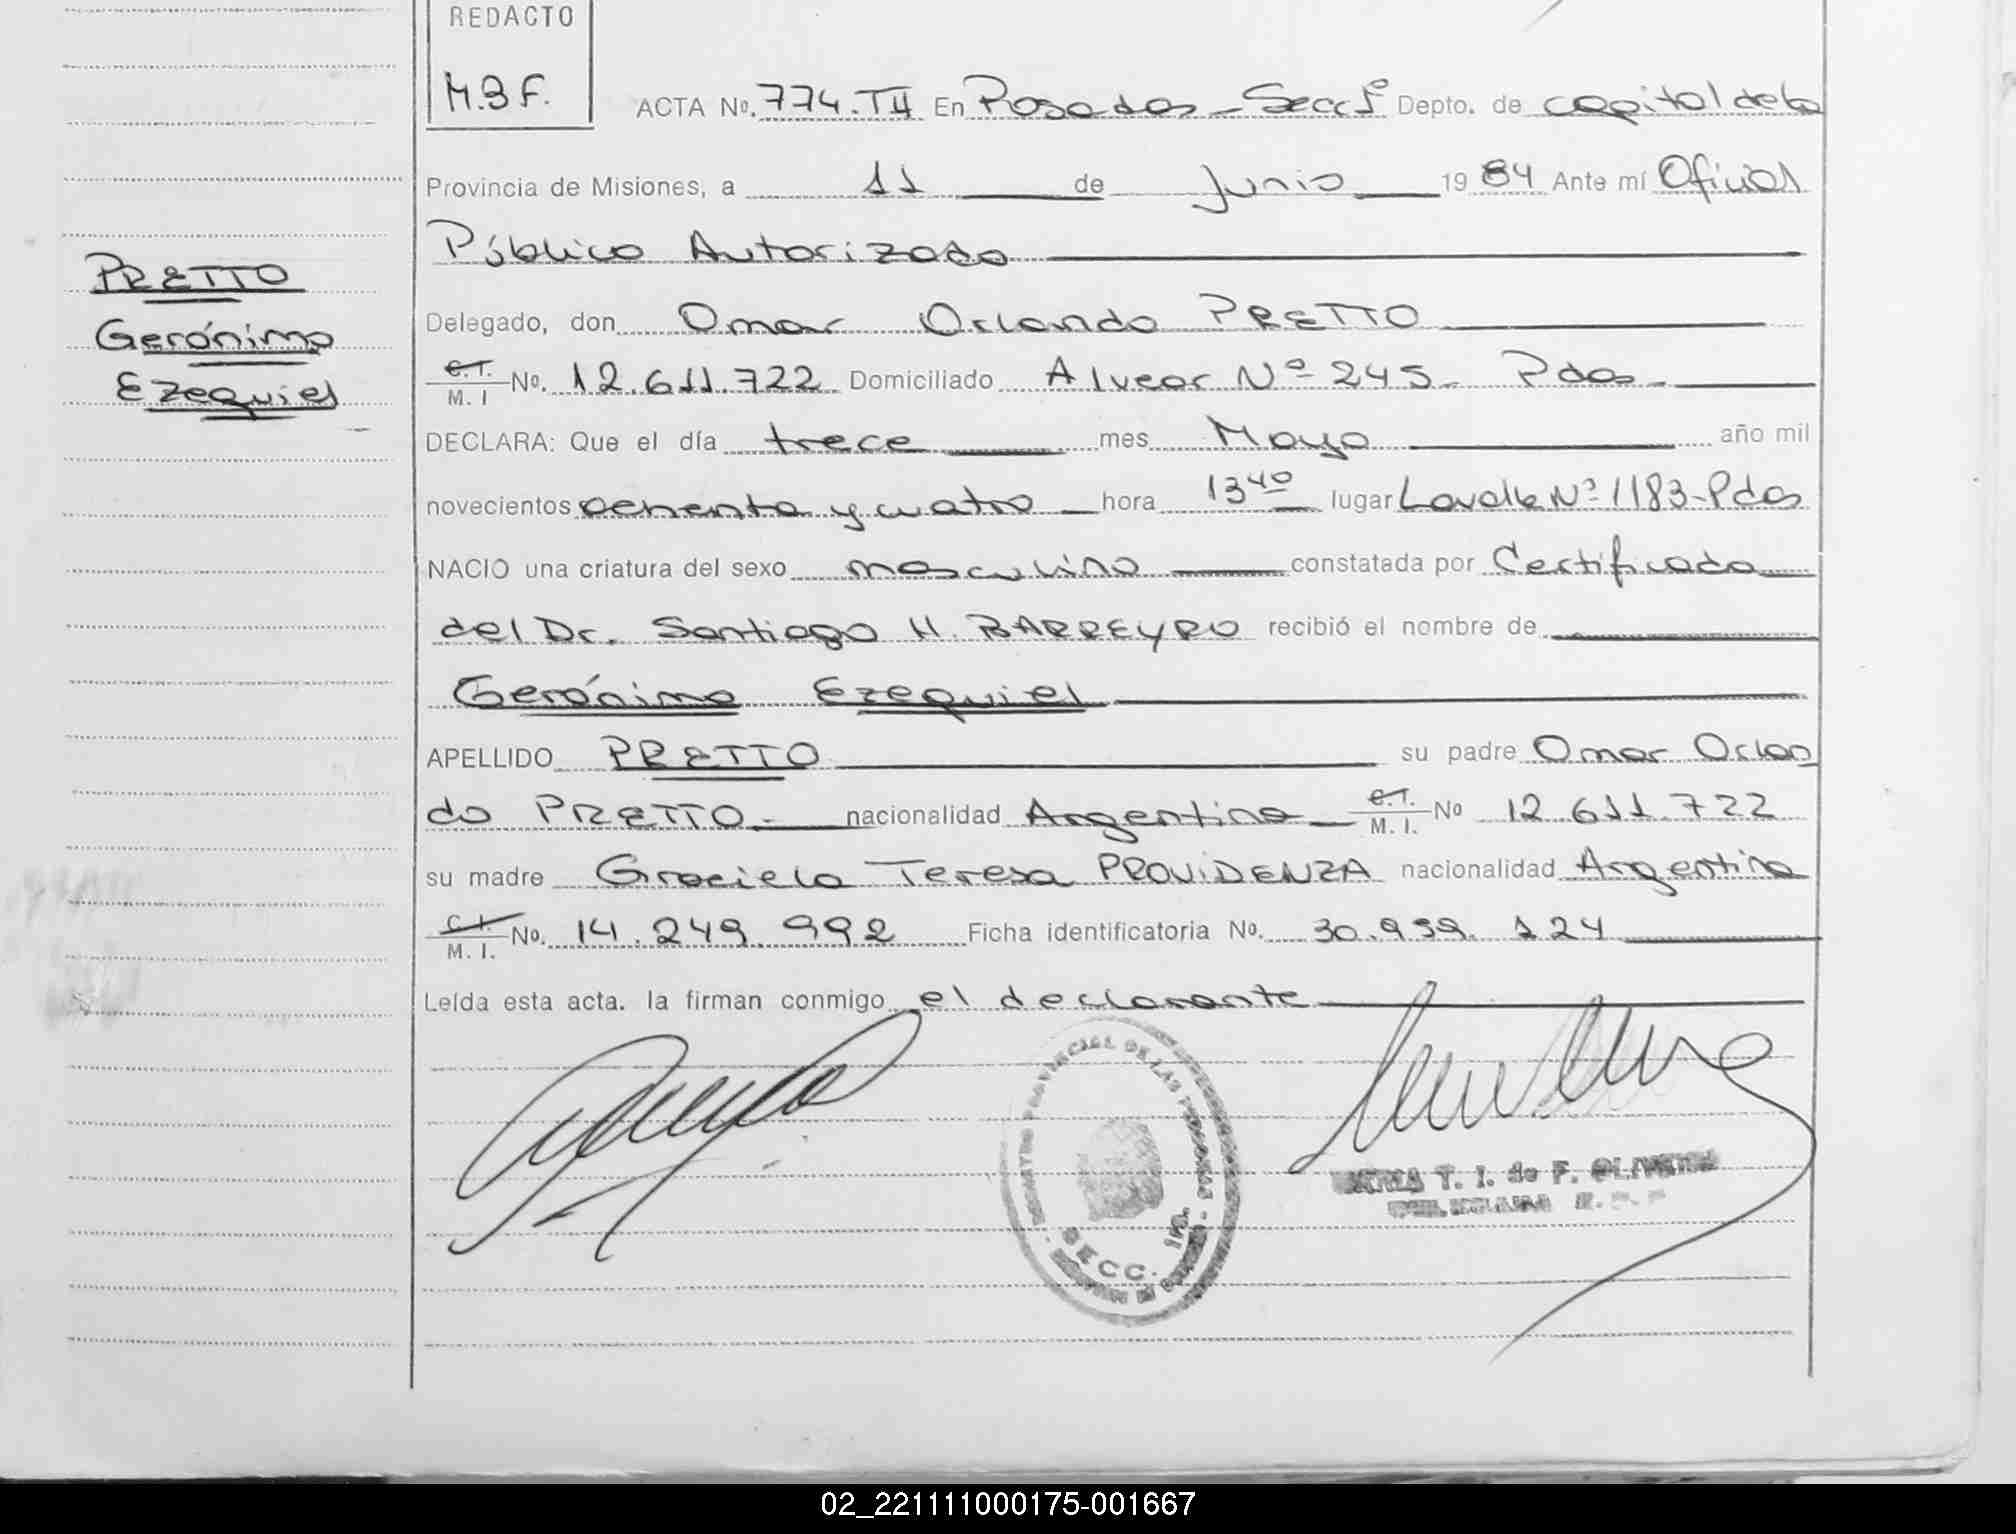 REDACTO
M.B F.
ACTA No. 774.TII En Posadas - Secc 1º Depto. de capital de la
Provincia de Misiones, a 11 de Junio 19 84 Ante mí Oficial
Público Autorizado
PRETTO
Gerónimo
Ezequiel
Delegado, don Omar Orlando PRETTO
C.I. M. I No. 12.611.722 Domiciliado Alvear Nº 245- Pdas-
DECLARA: Que el día trece mes Mayo año mil
novecientos ochenta y cuatro hora 13 40 lugar Lavalle Nº 1183-Pdas
NACIO una criatura del sexo masculino constatada por Certificado
del Dr. Santiago H. BARREYRO recibió el nombre de
Gerónimo Ezequiel
APELLIDO PRETTO su padre Omar Orlan
do PRETTO- nacionalidad Argentina C.I. M. I. No 12.611.722
su madre Graciela Teresa PROVIDENZA nacionalidad Argentina
C.I. M. I. No. 14.249.992 Ficha identificatoria No. 30.959.124
Leída esta acta. la firman conmigo el declarante
PROVINCIAL DE LAS PERSONAS
SECC. 1ra.
T. I. de F. OLIVEIRA
02_221111000175-001667